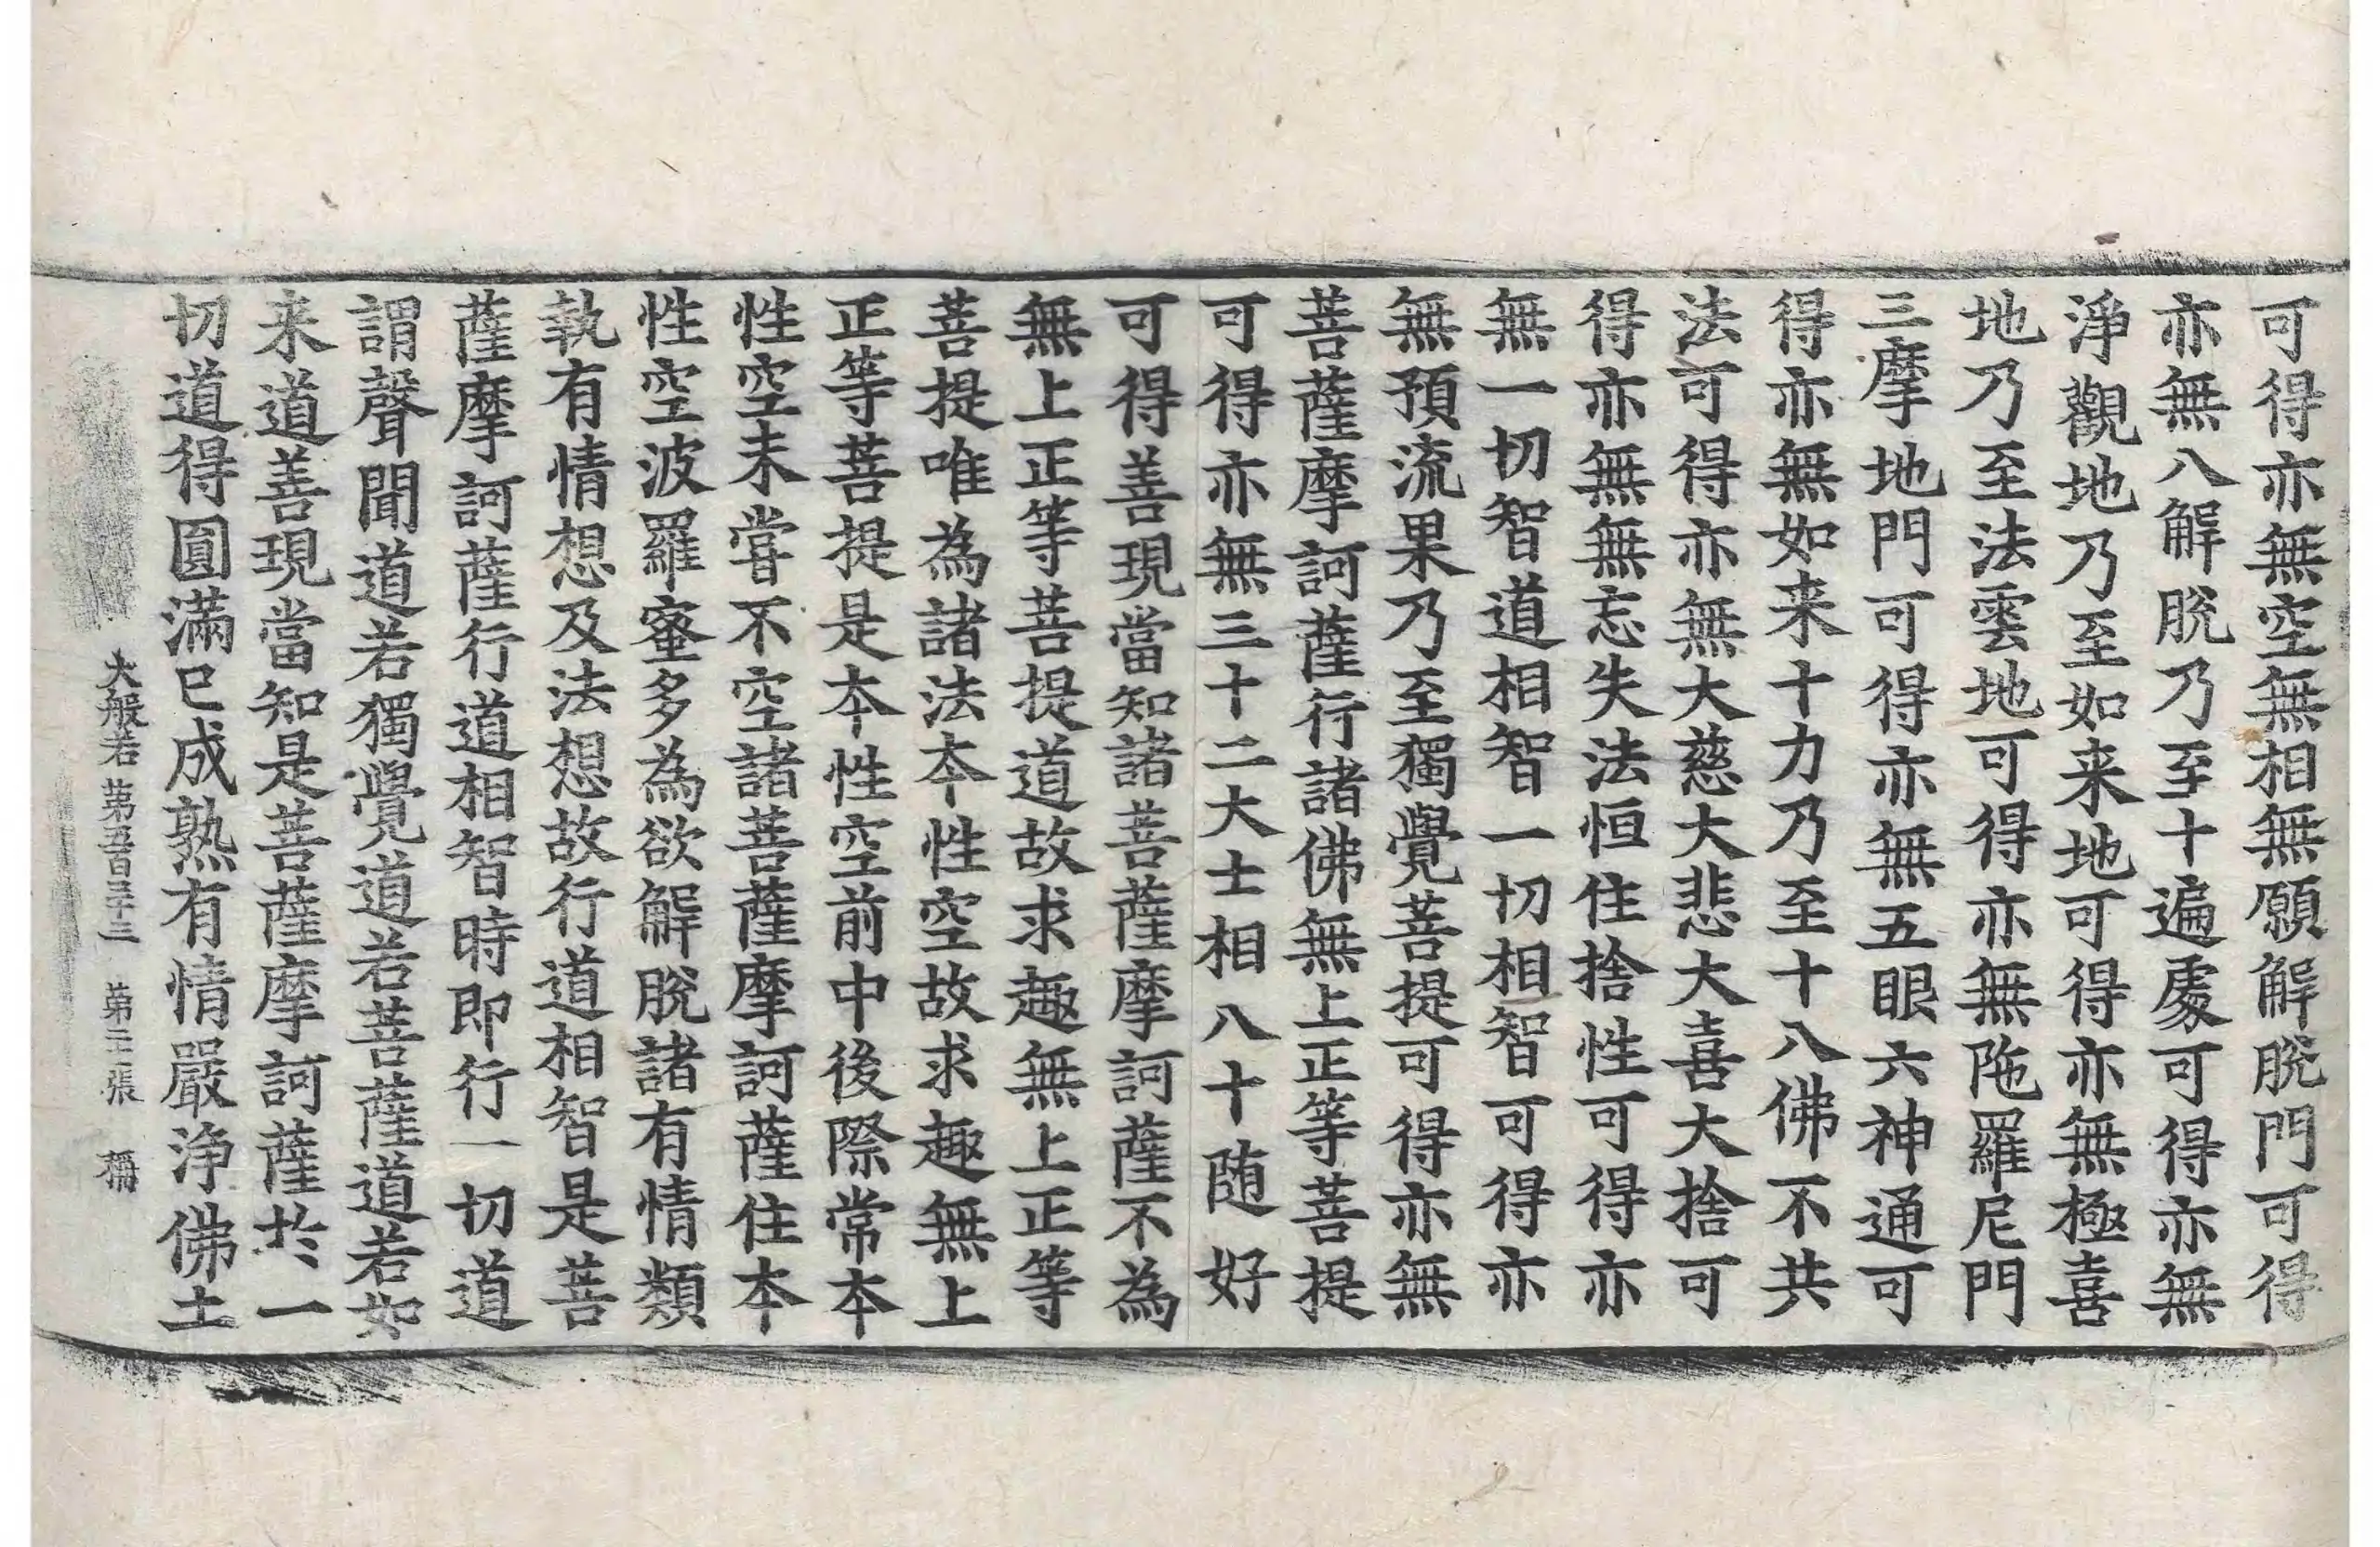 可得亦無空無相無願解脫門可得
亦無八解脫乃至十遍處可得亦無
淨觀地乃至如来地可得亦無極喜
地乃至法雲地可得亦無陁羅尼門
三摩地門可得亦無五眼六神通可
得亦無如来十力乃至十八佛不共
法可得亦無大慈大悲大喜大捨可
得亦無無忘失法恒住捨性可得亦
無一切智道相智一切相智可得亦
無預流果乃至獨覺菩提可得亦無
菩薩摩訶薩行諸佛無上正等菩提
可得亦無三十二大士相八十随好
可得善現當知諸菩薩摩訶薩不為
無上正等菩提道故求趣無上正等
菩提唯為諸法本性空故求趣無上
正等菩提是本性空前中後際常本
性空未甞不空諸菩薩摩訶薩住本
性空波羅蜜多為欲解脫諸有情類
執有情想及法想故行道相智是菩
薩摩訶薩行道相智時即行一切道
謂聲聞道若獨覺道若菩薩道若如
来道善現當知是菩薩摩訶薩於一
切道得圓滿已成熟有情嚴淨佛土
大般若 第五百三十三 第二十張 稱